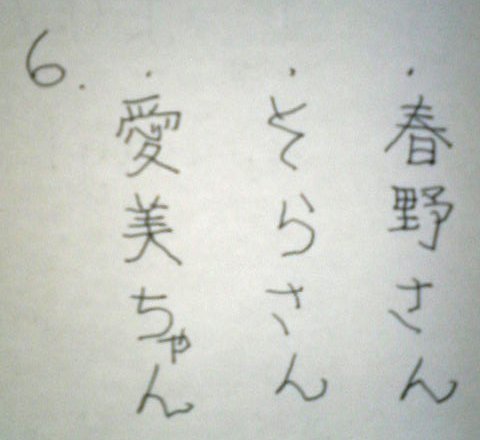 6.
・春野さん
・そらさん
・愛美ちゃん